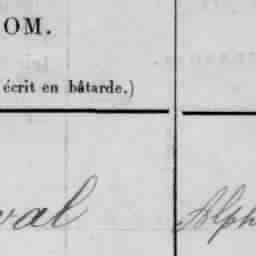 OM.
écrit en bâtarde.)
val Alph